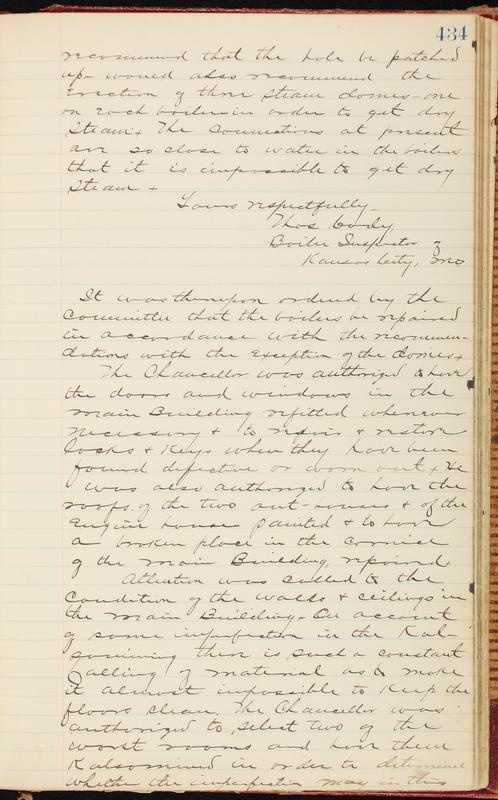 434
recommend that the hole be patched
up - would also recommend the
Erection of three Steam domes - one
on each boiler in order to get dry
Steam + The connections at present
are so close to water in the boilers
that it is impossible to get dry
Steam +
Yours respectfully -
Thos Cody,
Boiler Inspector of
Kansas City, Mo
It was thereupon ordered by the
Committee that the boilers be repaired
in accordance with the recommen-
dations with the exception of the domes +
The Chancellor was authorized to have
the doors and windows in the
Main Building refitted whenever
necessary & to repair & restore
locks & Keys when they have been
found defective or worn out + He
was also authorized to have the
roofs of the two out-houses & of the
Engine house painted & to have
a broken place in the cornice
of the Main Building, repaired.
Attention was called to the
Condition of the walls & ceilings in
the Main Building. On account
of some imperfection in the Kal-
somining there is such a constant
falling of material as to make
it almost impossible to Keep the
floors clean. The Chancellor was
authorized to select two of the
worst rooms and have them
Kalsomined in order to determine
whether the imperfection may in this